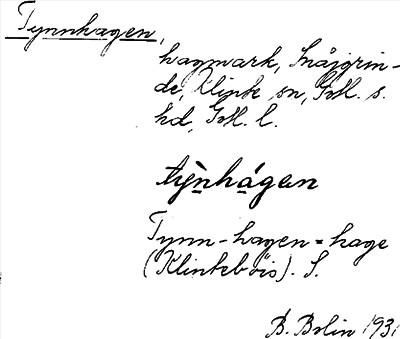 Tynnhagen,
hagmark, Snåjgrin-
de, Klinte sn, Gotl. s.
hd, Gotl. l.
tỳ̱nhá̱gan
Tynn-hagen = hage
(Klinteböis). S.
B. Bolin 1931